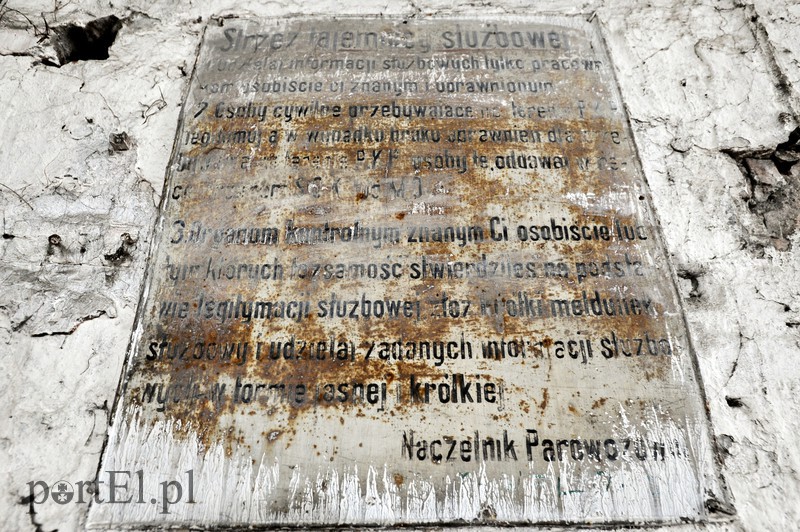 Strzeż tajemnicy służbowej
udzielaj informacji służbowych tylko pracow
osobiście Ci znanym i uprawnionym
2. Osoby cywilne przebywające na
a w wypadku braku uprawnień dla
osoby te, oddawaj w
S.O.K.
3. Organom kontrolnym znanym Ci osobiście lub
tym których tożsamość stwierdziłeś na podsta
wie legitymacji służbowej złóż krótki meldunek
służbowy i udzielaj żądanych informacji służbo
wych w formie jasnej i krótkiej
Naczelnik Parowozowni
portEl.pl